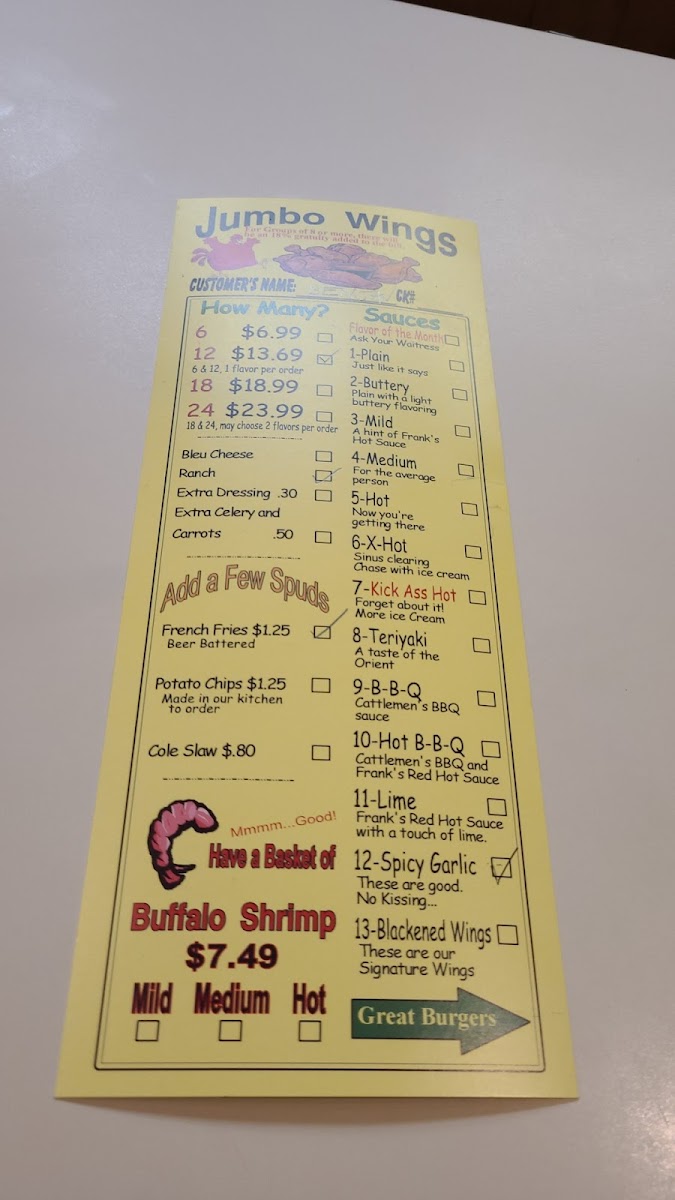 Jumbo Wings
For Groups of 8 or more, there will
be an 18% gratuity added to the bill.
CUSTOMER'S NAME:
CK#
How Many?
6 $6.99
12 $13.69
6 & 12, 1 flavor per order
18 $18.99
24 $23.99
18 & 24, may choose 2 flavors per order
Bleu Cheese
Ranch
Extra Dressing .30
Extra Celery and
Carrots .50
Add a Few Spuds
French Fries $1.25
Beer Battered
Potato Chips $1.25
Made in our kitchen
to order
Cole Slaw $.80
Mmmm...Good!
Have a Basket of
Buffalo Shrimp
$7.49
Mild Medium Hot
Sauces
Flavor of the Month
Ask Your Waitress
1-Plain
Just like it says
2-Buttery
Plain with a light
buttery flavoring
3-Mild
A hint of Frank's
Hot Sauce
4-Medium
For the average
person
5-Hot
Now you're
getting there
6-X-Hot
Sinus clearing
Chase with ice cream
7-Kick Ass Hot
Forget about it!
More ice Cream
8-Teriyaki
A taste of the
Orient
9-B-B-Q
Cattlemen's BBQ
sauce
10-Hot B-B-Q
Cattlemen's BBQ and
Frank's Red Hot Sauce
11-Lime
Frank's Red Hot Sauce
with a touch of lime.
12-Spicy Garlic
These are good.
No Kissing...
13-Blackened Wings
These are our
Signature Wings
Great Burgers